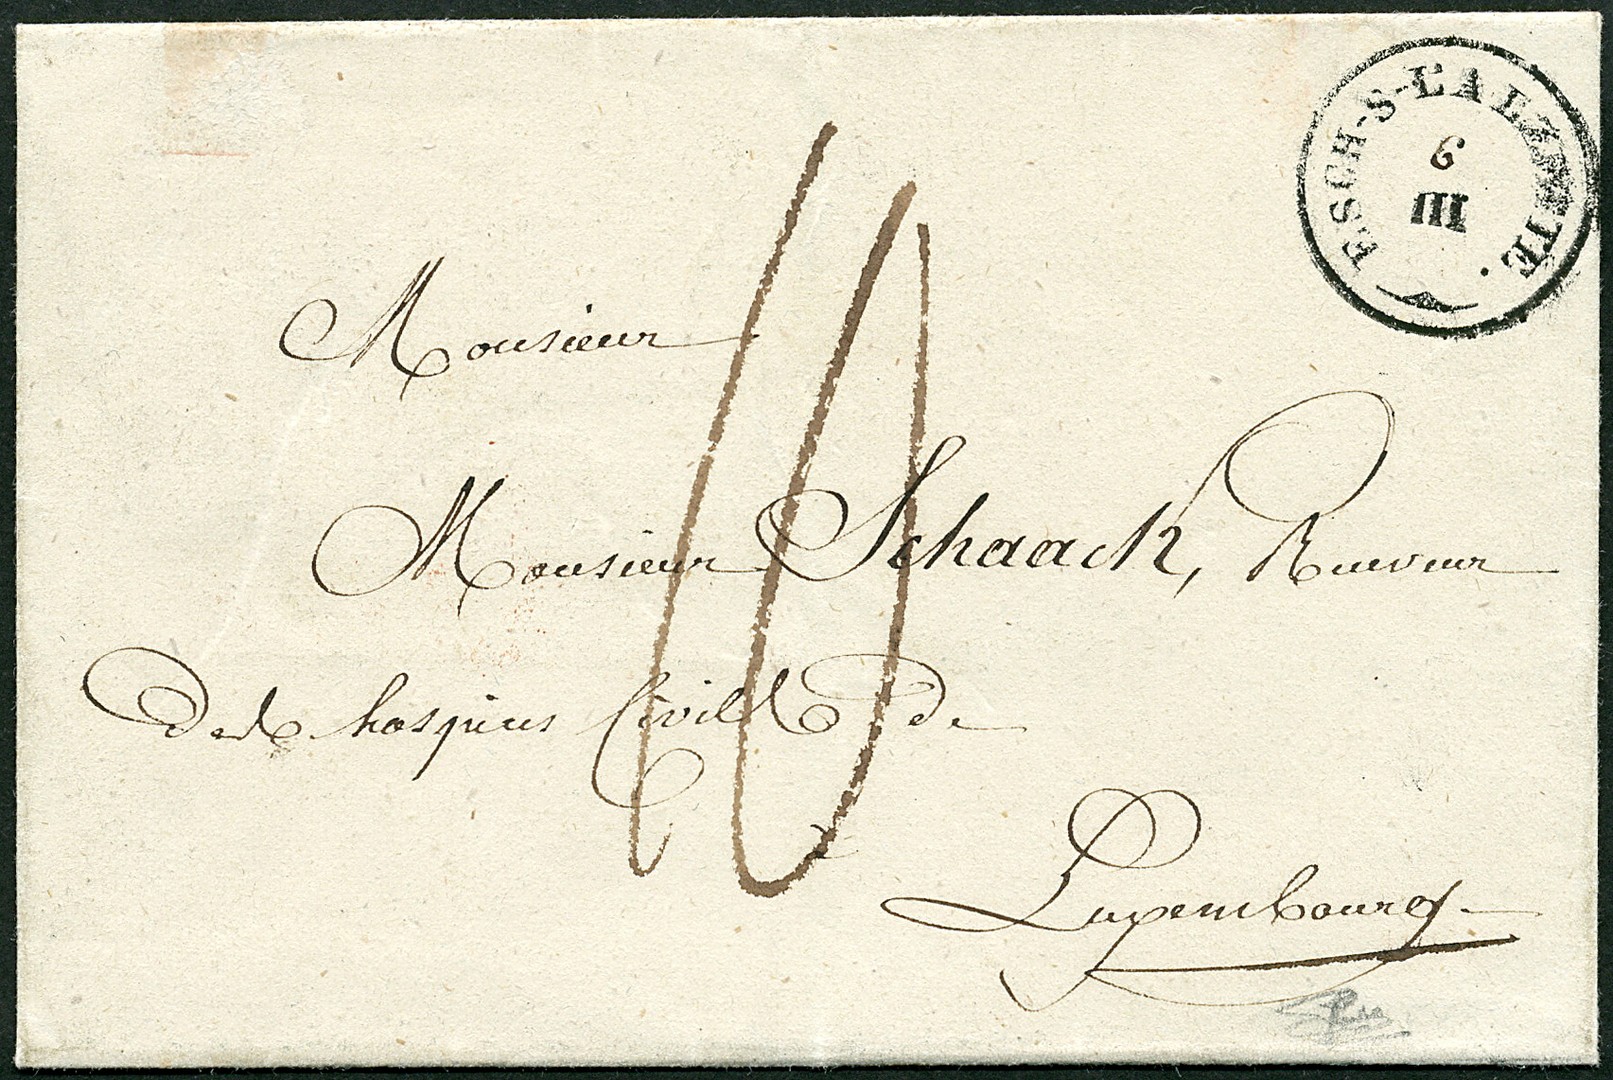 ESCH-S-L'ALZETTE.
6
III
10
Monsieur
Monsieur Schaack, Receveur
des hospices Civils de
Luxembourg